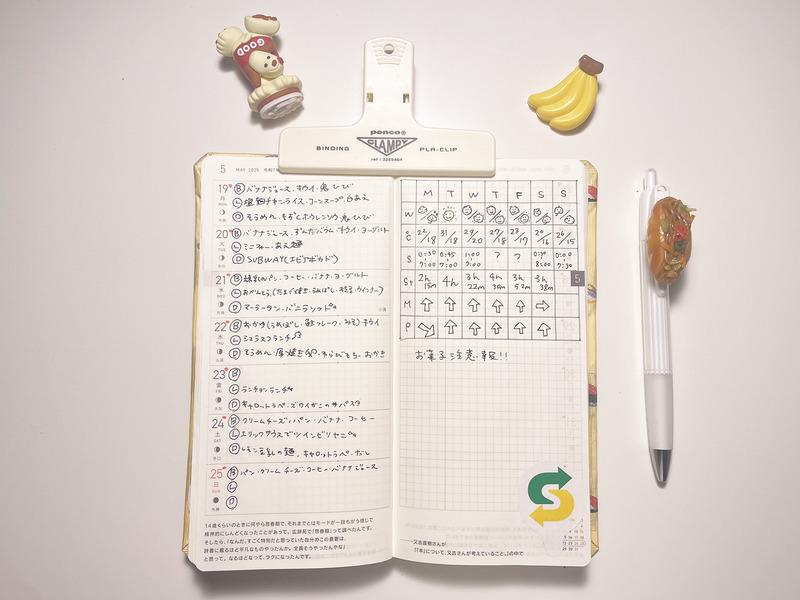 GOOD
penco®
CLAMPY
BINDING PLA-CLIP
5 MAY 2025 令和7年
19 月 MON
B バナナジュース・キウイ・鬼ひび
L チキンライス・コーンスープ 白あえ
D そうめん・もずくとホウレンソウ 鬼ひび
20 火 TUE
B バナナジュース・ずんだバウム・キウイ・ヨーグルト
L ミニカレー・あえ麺
D SUBWAY(エビアボカド)
21 水 WED
B 練乳パン・コーヒー・バナナ・ヨーグルト
L おべんとう(たまご焼き・うめぼし・枝豆・ウインナー)
D マーラータン・バニラソフト
22 木 THU
B おかゆ(うめぼし・鮭フレーク・みそ)キウイ
L シェラスコランチ
D そうめん・厚焼き・わらびもち・おかき
23 金 FRI
B
L ランチョンランチ
D キャロットラペ・ズワイガニのパスタ
24 土 SAT
B クリームチーズ・パン・バナナ・コーヒー
L エリックサウスでツインビリヤニ
D レモン豆乳の麺、キャロットラペ・だし
25 日 SUN
B パン・クリームチーズ・コーヒー・バナナジュース
L
D
14歳くらいのときに何やら思春期で、それまでとはモードが一段ちがう感じで
精神的にしんどくなったことがあって。広辞苑で「思春期」って調べたんです。
そしたら、「なんだ、すごく特別だと思っていた自分のこの憂鬱は、
辞書に載るほど平凡なものやったんか。全員そうやったんやな」
と思って。なるほどなって、ラクになったんです。
M T W T F S S
W
℃ 22/18 31/18 29/20 27/18 23/17 20/16 26/15
S 0:30 7:00 0:45 7:00 1:00 9:00 ? ? 0:30 8:00 0:00 7:30
St 2h 15m 4h 3h 22m 4h 39m 3h 52m 3h 38m
M
P
お菓子注意報!!
5
S
——又吉直樹さんが
『本』について、又吉さんが考えていること。』の中で